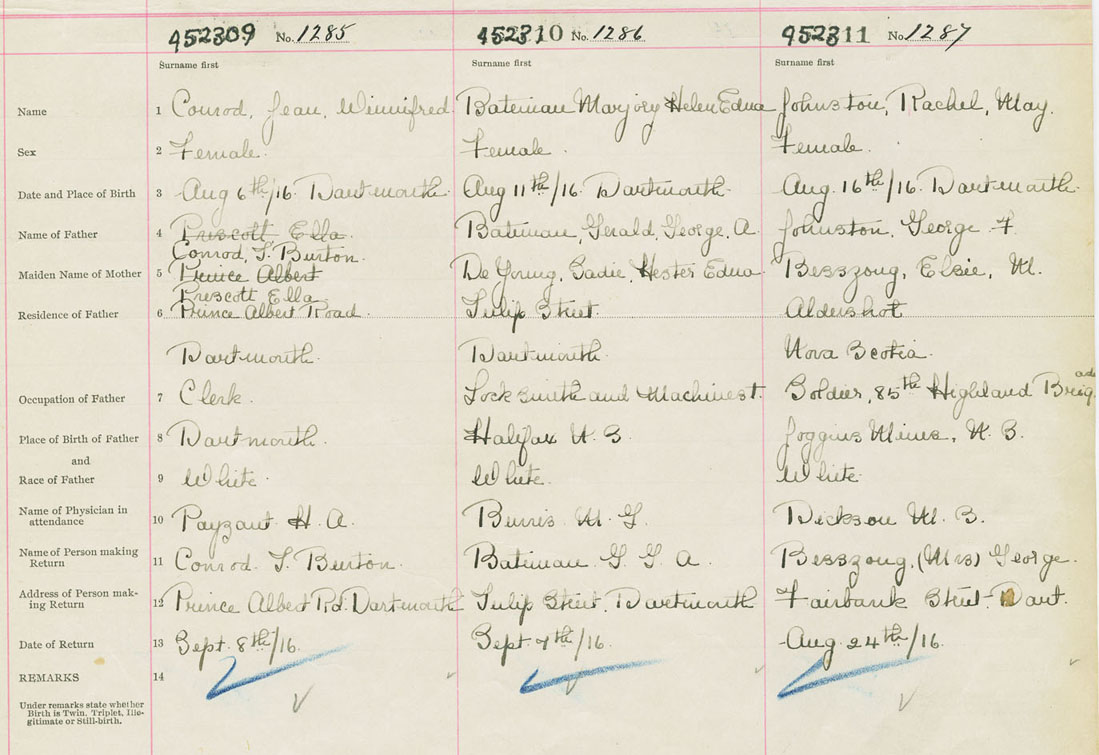 452309 No. 1285 452310 No. 1286 452311 No. 1287
Surname first Surname first Surname first
Name 1 Conrod, Jean, Winnifred Bateman Marjory Helen Edna Johnston, Rachel, May.
Sex 2 Female. Female. Female.
Date and Place of Birth 3 Aug 6th/16. Dartmouth. Aug 11th/16. Dartmouth. Aug. 16th/16. Dartmouth.
Name of Father 4 Prescott Ella. Bateman, Gerald, George, A. Johnston, George F
Conrod, T. Burton.
Maiden Name of Mother 5 Prince Albert De Young, Sadie, Hester Edna. Besszoug, Elsie, M.
Prescott Ella
Residence of Father 6 Prince Albert Road. Tulip Street. Aldershot
Dartmouth. Dartmouth. Nova Scotia.
Occupation of Father 7 Clerk. Locksmith and Machinest. Soldier, 85th Highland Brigade
Place of Birth of Father 8 Dartmouth. Halifax N.S. Joggins Mines, N.S.
and
Race of Father 9 White. White. White.
Name of Physician in
attendance 10 Payzant H. A. Burris. M. G. Dickson M. S.
Name of Person making
Return 11 Conrod. T. Burton. Bateman. G. G. A. Besszoug, (Mrs) George.
Address of Person mak-
ing Return 12 Prince Albert Rd. Dartmouth Tulip Street, Dartmouth Fairbank Street. Dart.
Date of Return 13 Sept. 8th/16. Sept. 7th/16. Aug. 24th/16.
REMARKS 14
Under remarks state whether
Birth is Twin, Triplet, Ille-
gitimate or Still-birth.